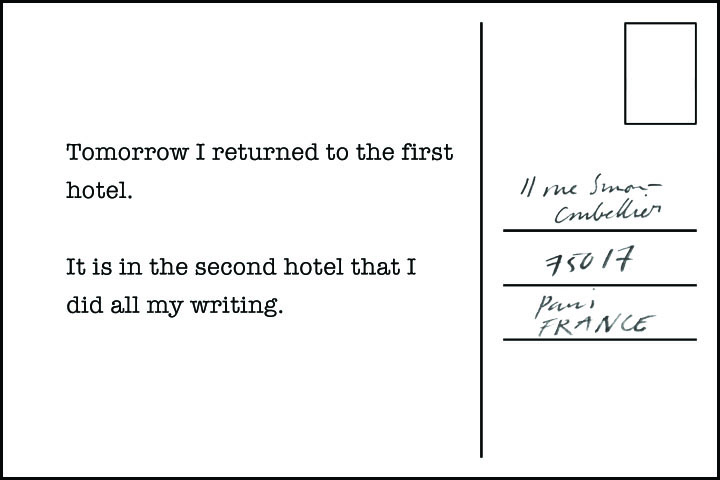 Tomorrow I returned to the first
hotel.
It is in the second hotel that I
did all my writing.
11 rue Simon
75017
Paris
FRANCE